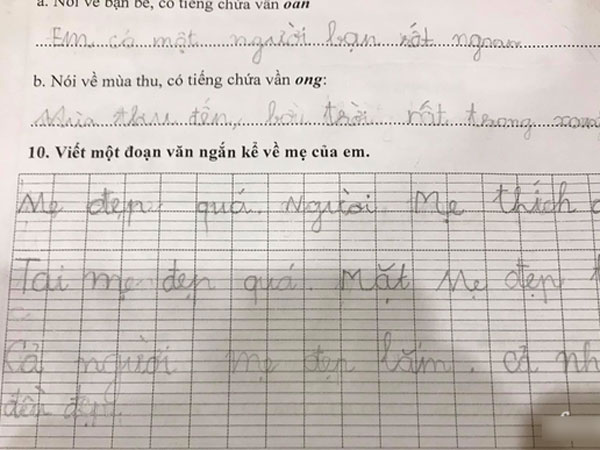 a. Nói về bạn bè, có tiếng chứa vần oan
Em có một người bạn rất ngoan
b. Nói về mùa thu, có tiếng chứa vần ong:
Mùa thu đến, bầu trời rất trong xanh
10. Viết một đoạn văn ngắn kể về mẹ của em.
Mẹ đẹp quá. Người Mẹ thích
Tai mẹ đẹp quá. Mặt Mẹ đẹp
Cả người mẹ đẹp lắm. cả nh
đều đẹp.